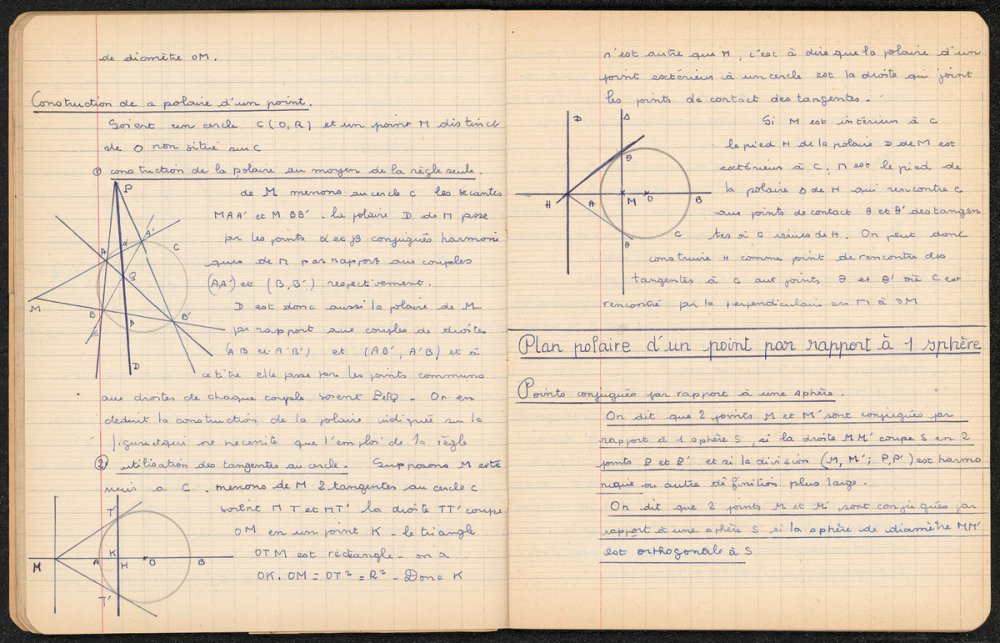 de diamètre OM.
Construction de a polaire d'un point.
Soient un cercle C(O,R) et un point M distinct
de O non situé sur C
① construction de la polaire au moyen de la règle seule.
de M menons au cercle C les secantes
MAA' et M BB' . la polaire D de M passe
par les points α et β conjugués harmoni
ques de M par rapport aux couples
(AA') et (B,B') respectivement.
D est donc aussi la polaire de M
par rapport aux couples de droites
(AB et A'B') et (AB', A'B) et à
ce titre elle passe par les points communs
aux droites de chaque couple. soient P et Q . On en
deduit la construction de la polaire indiquée sur la
figure qui ne necessite que l'emploi de la règle
② utilisation des tangentes au cercle. Supposons M exté
rieur a C . menons de M 2 tangentes au cercle C
soient M T et MT' la droite TT' coupe
OM en un point K . le triangle
OTM est rectangle . on a
OK. OM = OT² = R² . Donc K
P
A'
α
A
C
Q
M
B
B'
β
D
T
K
M
A
H
O
B
T'
n'est autre que H , c'est à dire que la polaire d'un
point extérieur à un cercle est la droite qui joint
les points de contact des tangentes .
Si M est intérieur à C
le pied H de la polaire D de M est
extérieur à C. M est le pied de
la polaire Δ de H qui rencontre C
aux points de contact θ et θ' des tangen
tes à C issues de H. On peut donc
construire H comme point de rencontre des
tangentes à C aux points θ et θ' où C est
rencontré par la perpendiculaire en M à OM
D
Δ
θ
H
A
M
O
B
θ
C
Plan polaire d'un point par rapport à 1 sphère
Points conjugués par rapport à une sphère.
On dit que 2 points M et M' sont conjugués par
rapport à 1 sphère S , si la droite MM' coupe S en 2
points P et P' et si la division (M, M'; P, P') est harmo
nique ou autre définition plus large .
On dit que 2 points M et M' sont conjugués par
rapport à une sphère S si la sphère de diamètre MM'
est orthogonale à S